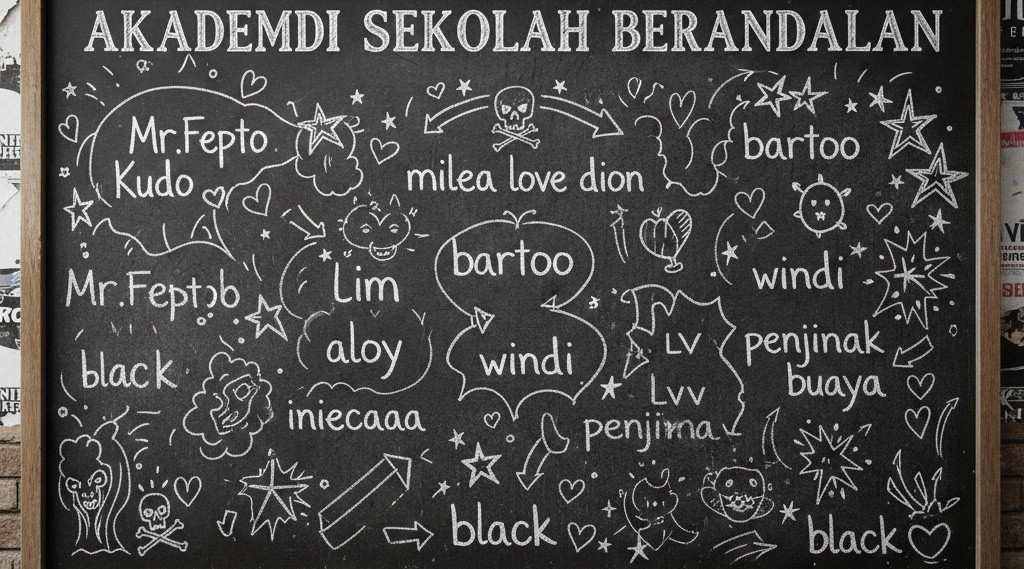 AKADEMDI SEKOLAH BERANDALAN
Mr.Fepto
Kudo
milea love dion
bartoo
Mr.Feptob
Lim
bartoo
windi
aloy
windi
LV
penjinak
buaya
black
iniecaaa
Lvv
penjima
black
black